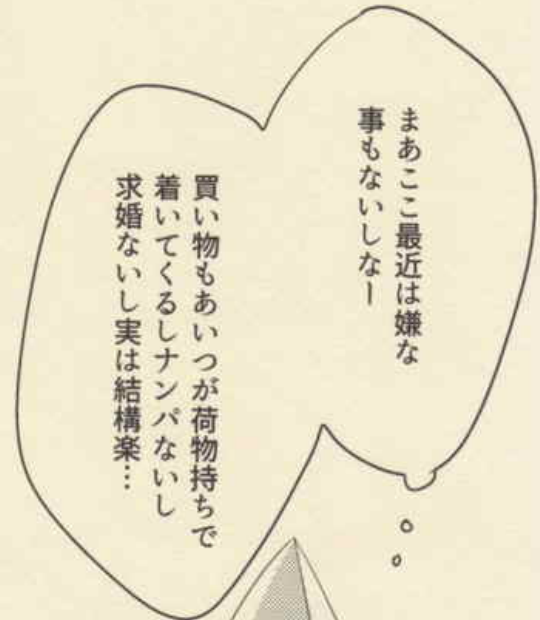 まあここ最近は嫌な
事もないしなー
買い物もあいつが荷物持ちで
着いてくるしナンパないし
求婚ないし実は結構楽…